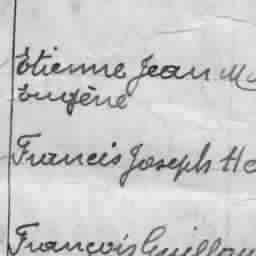 Etienne Jean M
Eugène
Francis Joseph He
François Guillau